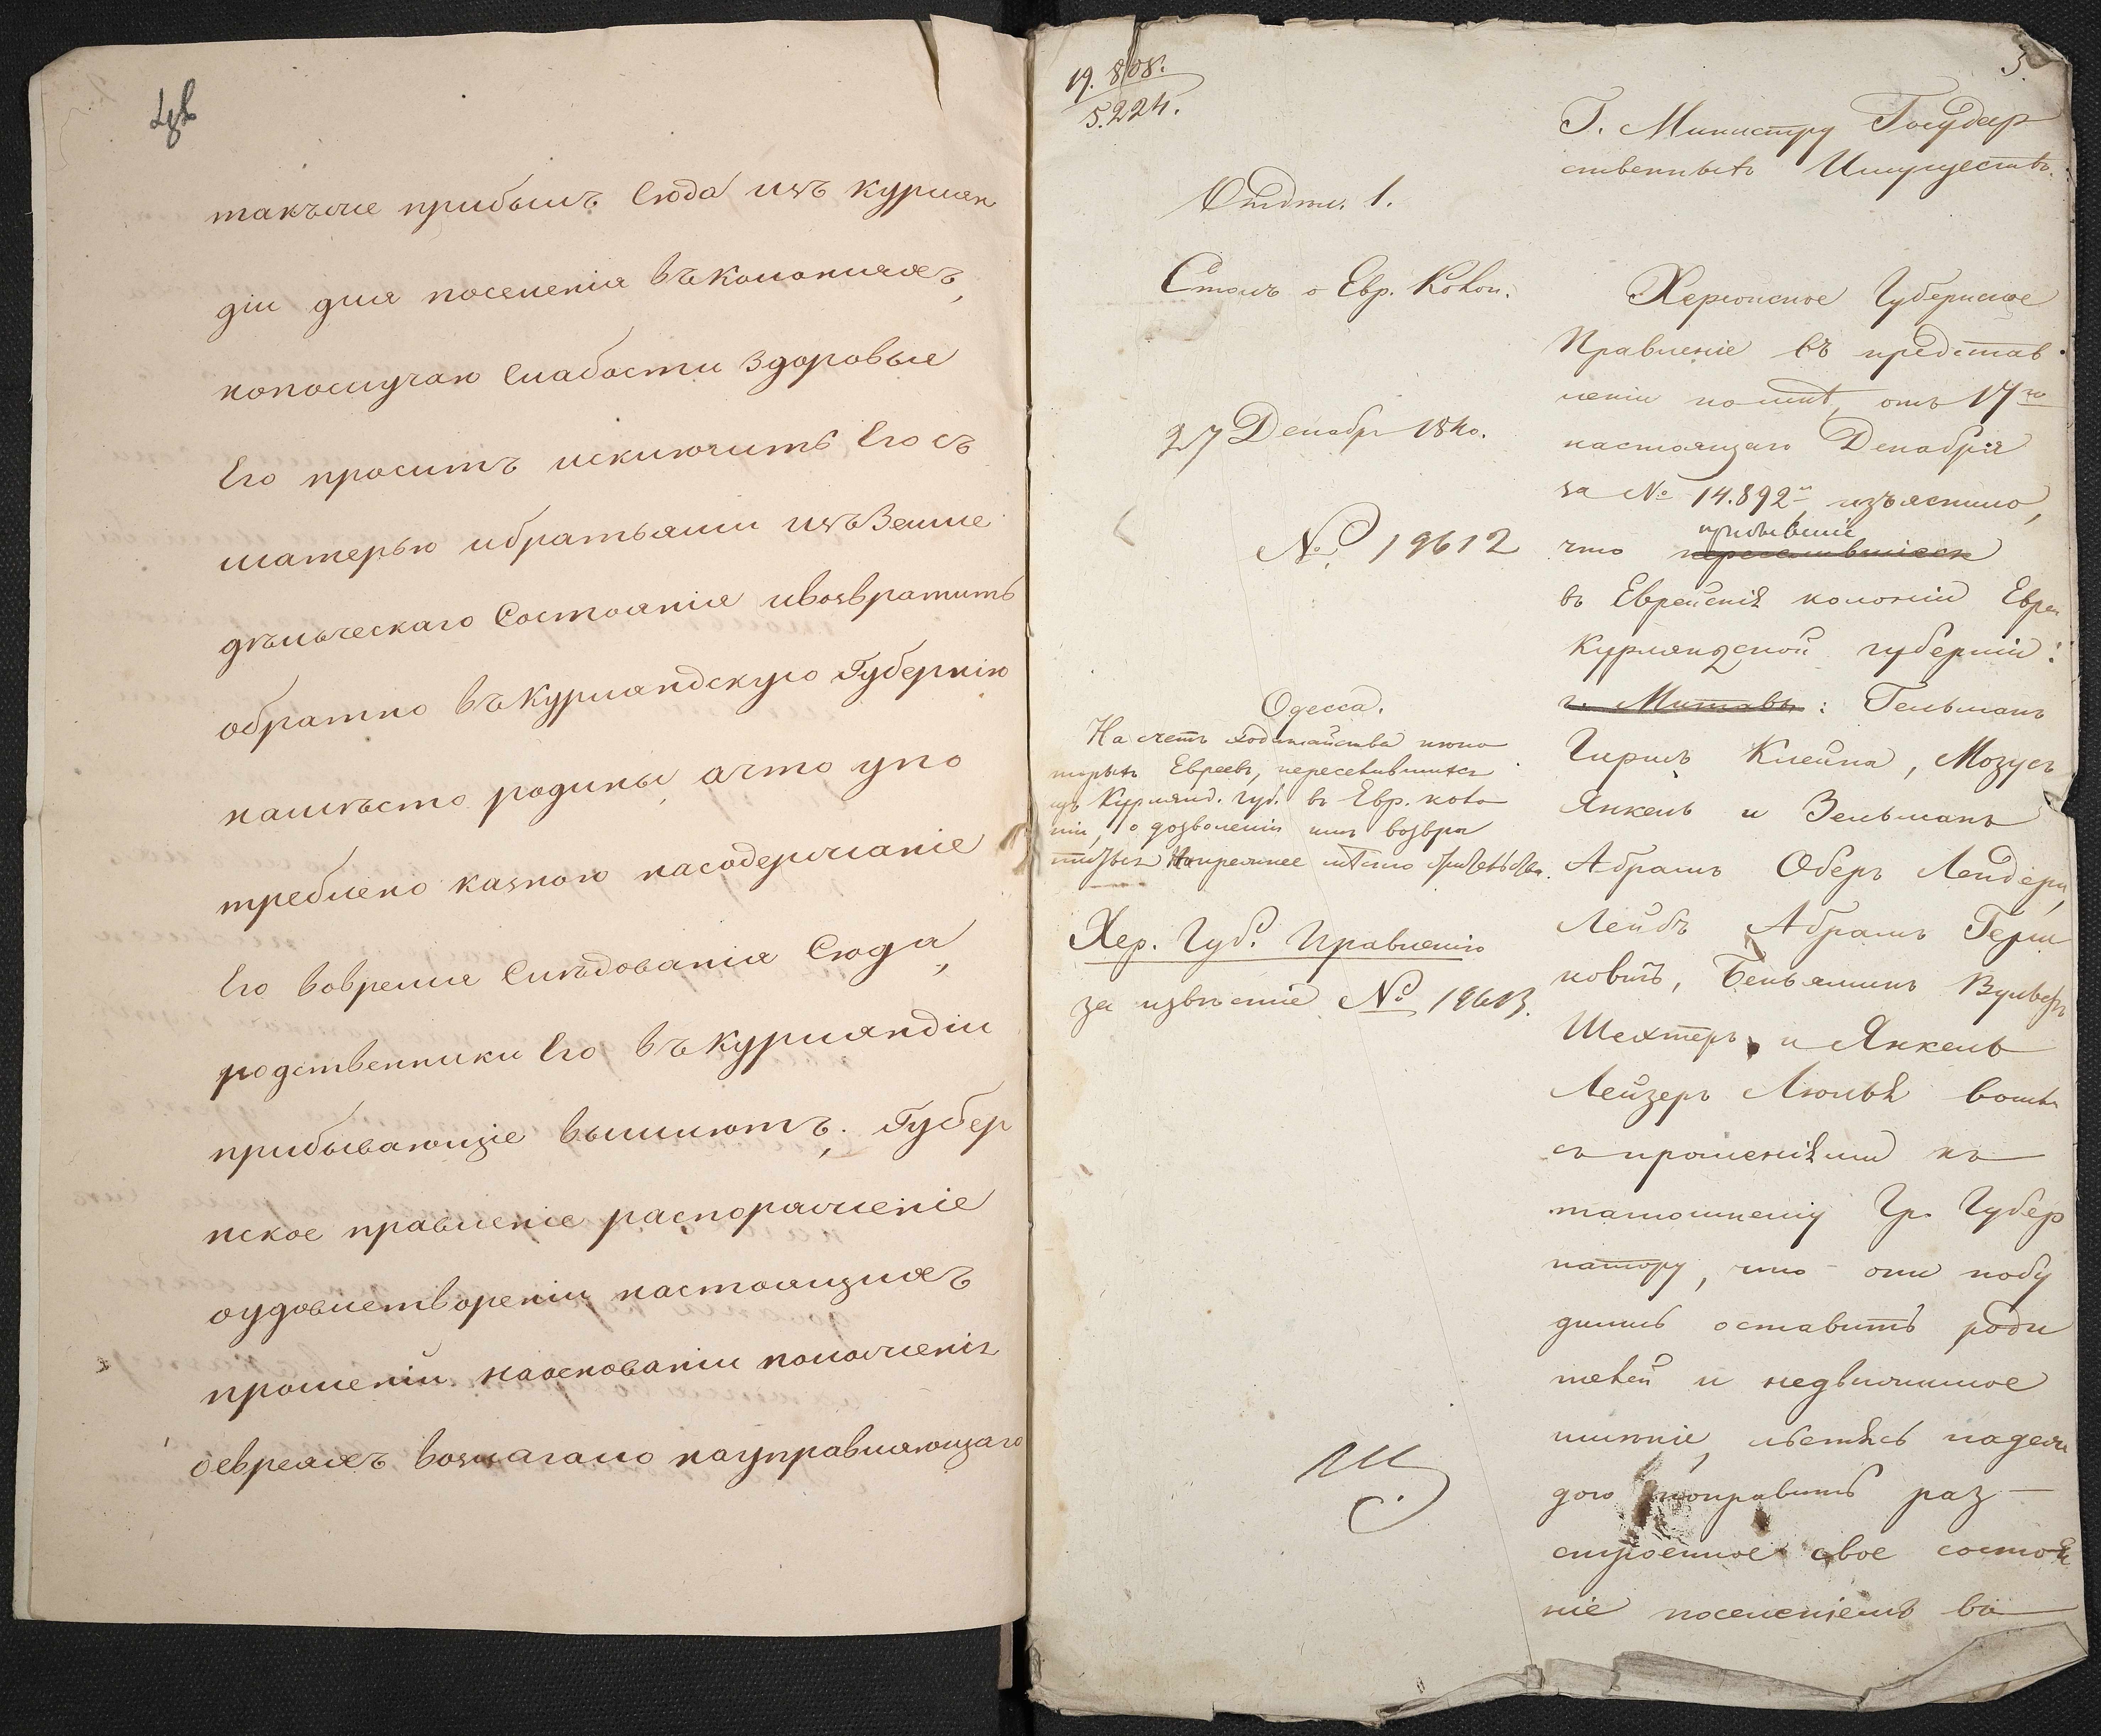 такъже прибылъ сюда изъ Курлян
діи для поселенія въ Колоніяхъ,
нопослучаю слабости здоровье
его проситъ исключить его съ
матерью ибратьями изъ Земле
дѣльческаго состоянія ивозвратить
обратно въ Курляндскую Губернію
намѣсто родины, ачто упо
треблено казною насодержаніе
его вовремя слѣдованія сюда,
родственники его въ Курляндіи
прибывающіе вышлютъ; Губер
нское правленіе распоряженіе
оудовлетвореніи настоящихъ
прошеній наоснованіи положенія
оевреяхъ возлагало научравляющаго
3.
19.808.
5.224.
Отдѣл. 1.
Столъ о Евр. Колон.
27 Декабр 1840.
№ 19612
Одесса.
На счетъ ходатайства нѣко
торыхъ Евреевъ, переселившихся
изъ Курлянд. губ. въ Евр. коло
ніи, о дозволеніи имъ возвра
титься на прежнее мѣсто жительства.
Хер. Губ. Правленію
за извѣстіе № 19613.
Г. Министру Государ
ственныхъ Имуществъ.
Херсонское Губернское
Правленіе въ представ
леніи ко мнѣ, отъ 17го
настоящаго Декабря
за № 14.892м, изъяснило,
прибывшіе
что переселившіеся
въ Еврейскія колоніи Евреи
Курляндской губерніи:
г. Митавы: Гельманъ
Гиршъ Клейна, Мозусъ
Янкель и Зельманъ
Абрамъ Оберъ Лендеры,
Лейбъ Абрамъ Герш
ковичъ, Беньяминъ Вульфъ
Шехтеръ, и Янкель
Лейзеръ Люльѣ вошли
съ прошеніями къ
тамошнему Гр. Губер
натору, что они побу
дились оставить роди
телей и недвижимое
имѣніе, льстясь надеж
дою поправить раз
строенное свое состоя
ніе поселеніемъ въ